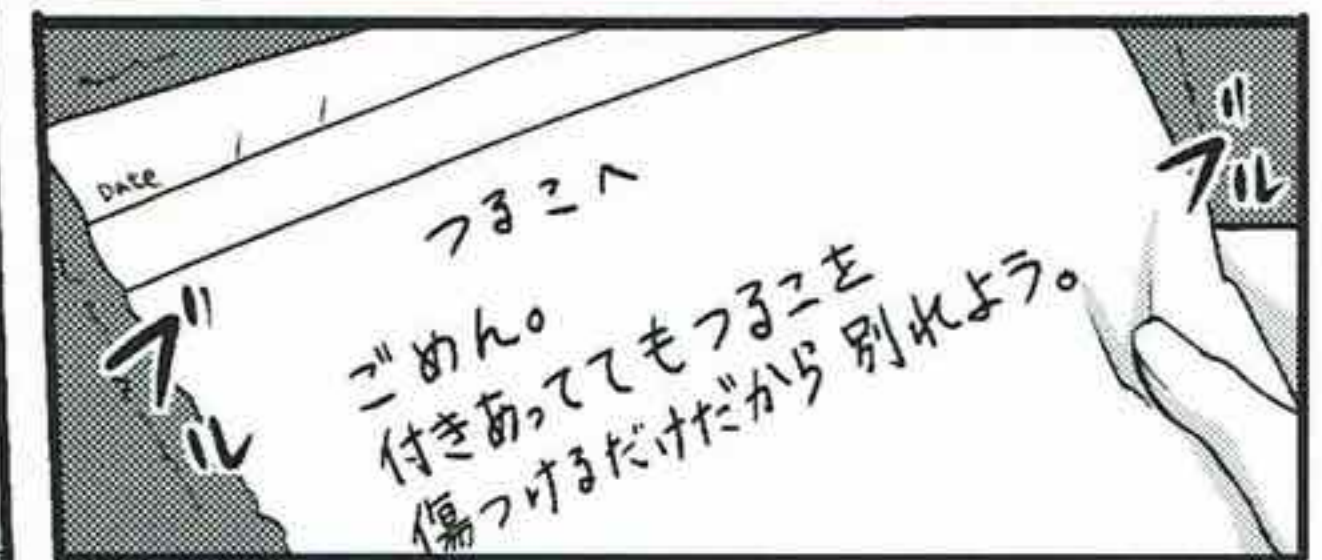 DATE / /
つるこへ
ごめん。
付きあっててもつるこを
傷つけるだけだから別れよう。
ブル
ブル